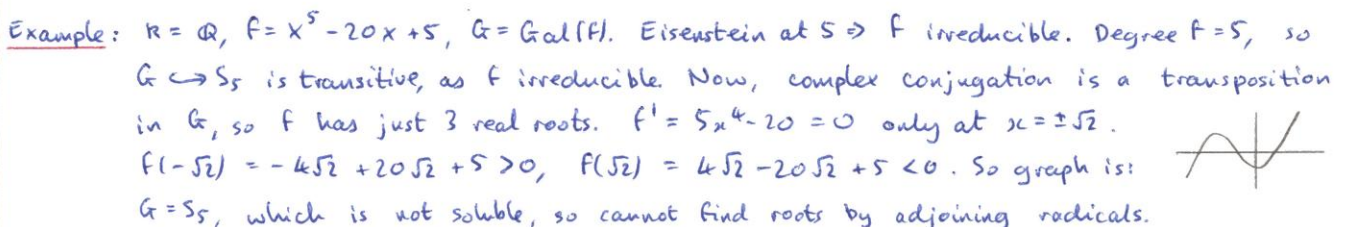 Example: k = ℚ, f = x⁵ - 20x + 5, G = Gal(f). Eisenstein at 5 ⇒ f irreducible. Degree f = 5, so
G ↪ S₅ is transitive, as f irreducible. Now, complex conjugation is a transposition
in G, so f has just 3 real roots. f' = 5x⁴ - 20 = 0 only at x = ±√2.
f(-√2) = -4√2 + 20√2 + 5 > 0, f(√2) = 4√2 - 20√2 + 5 < 0. So graph is:
G = S₅, which is not soluble, so cannot find roots by adjoining radicals.